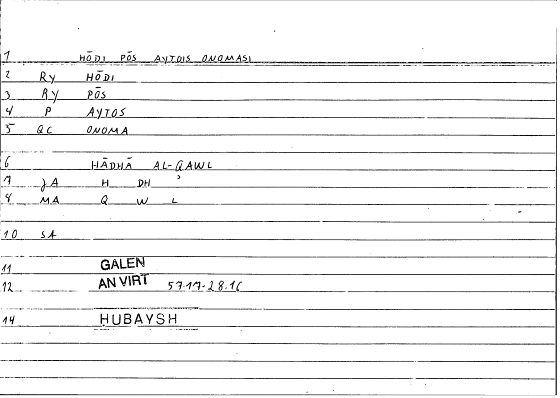 1 HŌDI PŌS AYTOIS ONOMASI
2 RY HŌDI
3 RY PŌS
4 P AYTOS
5 QC ONOMA
6 HĀDHĀ AL-QAWL
7 JA H DH ʾ
8 MA Q W L
10 SA
11 GALEN
12 AN VIRT 57.17-28.16
14 HUBAYSH